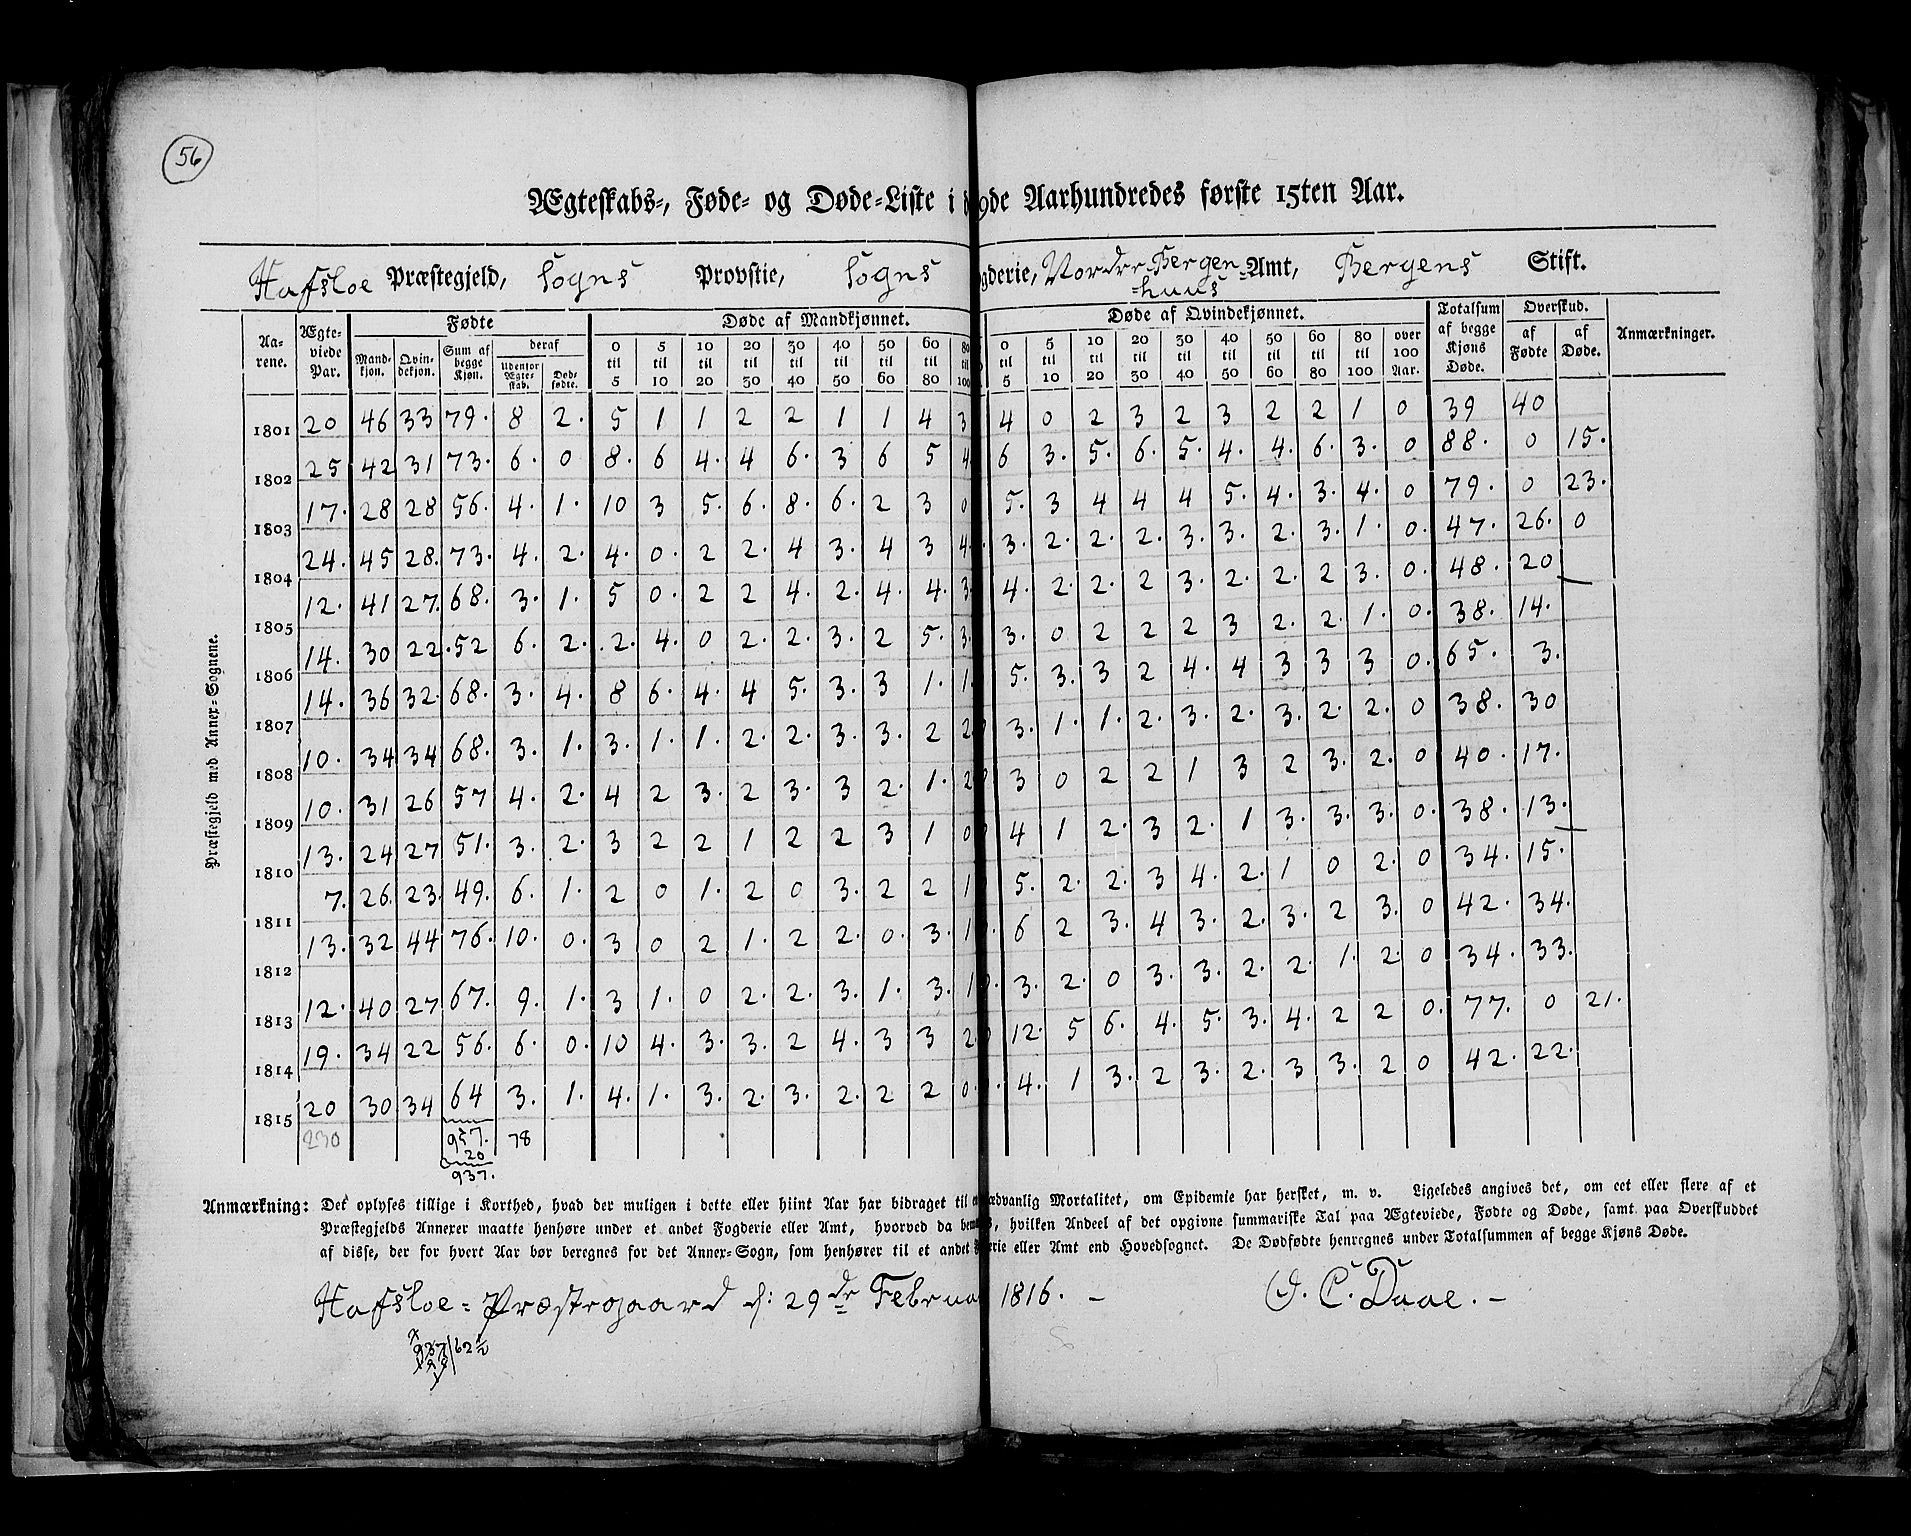 56
Ægteskabs-, Føde- og Døde-Liste i 9de Aarhundredes første 15ten Aar.
Hafsloe Præstegjeld, Sogns Provstie, Sogns gderie, Nordre Bergen-huus Amt, Bergens Stift.
Præstegjeld med Annex-Sognene.
Aarene. Ægteviede Par. Fødte Døde af Mandkjønnet. Døde af Qvindekjønnet. Totalsum af begge Kjøns Døde. Overskud. Anmærkninger.
Mandkjøn. Qvindekjøn. Sum af begge Kjøn. deraf af Fødte af Døde.
Udenfor Ægteskab. Dødfødte.
0 til 5 5 til 10 10 til 20 20 til 30 30 til 40 40 til 50 50 til 60 60 til 80 80 til 100 0 til 5 5 til 10 10 til 20 20 til 30 30 til 40 40 til 50 50 til 60 60 til 80 80 til 100 over 100 Aar.
1801 20 46 33 79. 8 2. 5 1 1 2 2 1 1 4 3 4 0 2 3 2 3 2 2 1 0 39 40
1802 25 42 31 73. 6. 0 8. 6 4. 4 6. 3 6 5 4. 6 3. 5. 6. 5. 4. 4. 6. 3. 0 88. 0 15.
1803 17. 28 28 56. 4. 1. 10 3 5. 6. 8. 6. 2 3 0 5. 3 4 4 4 5. 4. 3. 4. 0 79. 0 23.
1804 24. 45 28. 73. 4. 2. 4. 0. 2 2. 4 3. 4 3 4. 3. 2. 2. 2. 3. 3. 2. 3. 1. 0. 47. 26. 0
1805 12. 41 27. 68. 3. 1. 5 0. 2 2 4. 2. 4. 4. 3. 4. 2. 2. 2 3. 2. 2. 2 3. 0. 48. 20 —
1806 14. 30 22. 52 6. 2. 2. 4. 0 2. 2. 3. 2 5. 3. 3. 0 2 2 2 3 2. 2. 1. 0. 38. 14.
1807 14. 36 32. 68. 3. 4. 8 6. 4. 4 5. 3. 3 1. 1. 5. 3. 3 2 4. 4 3 3 3 0. 65. 3.
1808 10. 34 34 68. 3. 1. 3. 1. 1. 2. 2. 3. 3. 2 2 3. 1. 1. 2. 3. 2. 3. 2. 2. 0 38. 30
1809 10. 31 26 57 4. 2. 4 2 3. 2 3. 3 2. 1. 2 3 0 2 2 1 3 2 3. 2. 0 40. 17.
1810 13. 24 27 51. 3. 2. 3 2 2 1 2 2 3 1 0 4 1 2. 3 2. 1 3. 3. 3. 0. 38. 13. —
1811 7. 26. 23. 49. 6. 1. 2 0 1. 2 0 3. 2 2 1 5. 2. 2. 3 4. 2. 1 0 2. 0 34. 15.
1812 13. 32 44 76. 10. 0. 3 0 2 1. 2 2. 0. 3. 1 6 2 3. 4 3. 2. 3. 2 3. 0 42. 34.
1813 12. 40 27 67. 9. 1. 3 1. 0 2. 2. 3. 1. 3. 1 3. 2. 0 3. 3. 2. 2. 1. 2. 0 34. 33.
1814 19. 34 22 56. 6. 0. 10 4. 3. 3. 2 4. 3 3 2. 12. 5 6. 4. 5. 3. 4. 2 2 0. 77. 0 21.
1815 20 30 34 64 3. 1. 4. 1. 3. 2. 3. 2. 2 2 0. 4. 1 3. 2 3. 2. 3 3. 2 0 42. 22.
230 957. 78
20
937.
Anmærkning: Det oplyses tillige i Korthed, hvad der muligen i dette eller hiint Aar har bidraget til ædvanlig Mortalitet, om Epidemie har hersket, m. v. Ligeledes angives det, om eet eller flere af et
Præstegjelds Annexer maatte henhøre under et andet Fogderie eller Amt, hvorved da be s, hvilken Andeel af det opgivne summariske Tal paa Ægteviede, Fødte og Døde, samt paa Overskuddet
af disse, der for hvert Aar bør beregnes for det Annex-Sogn, som henhører til et andet erie eller Amt end Hovedsognet. De Dødfødte henregnes under Totalsummen af begge Kjøns Døde.
Hafsloe-Præstegaard d: 29de Februa 1816. – C. Daae. –
62½